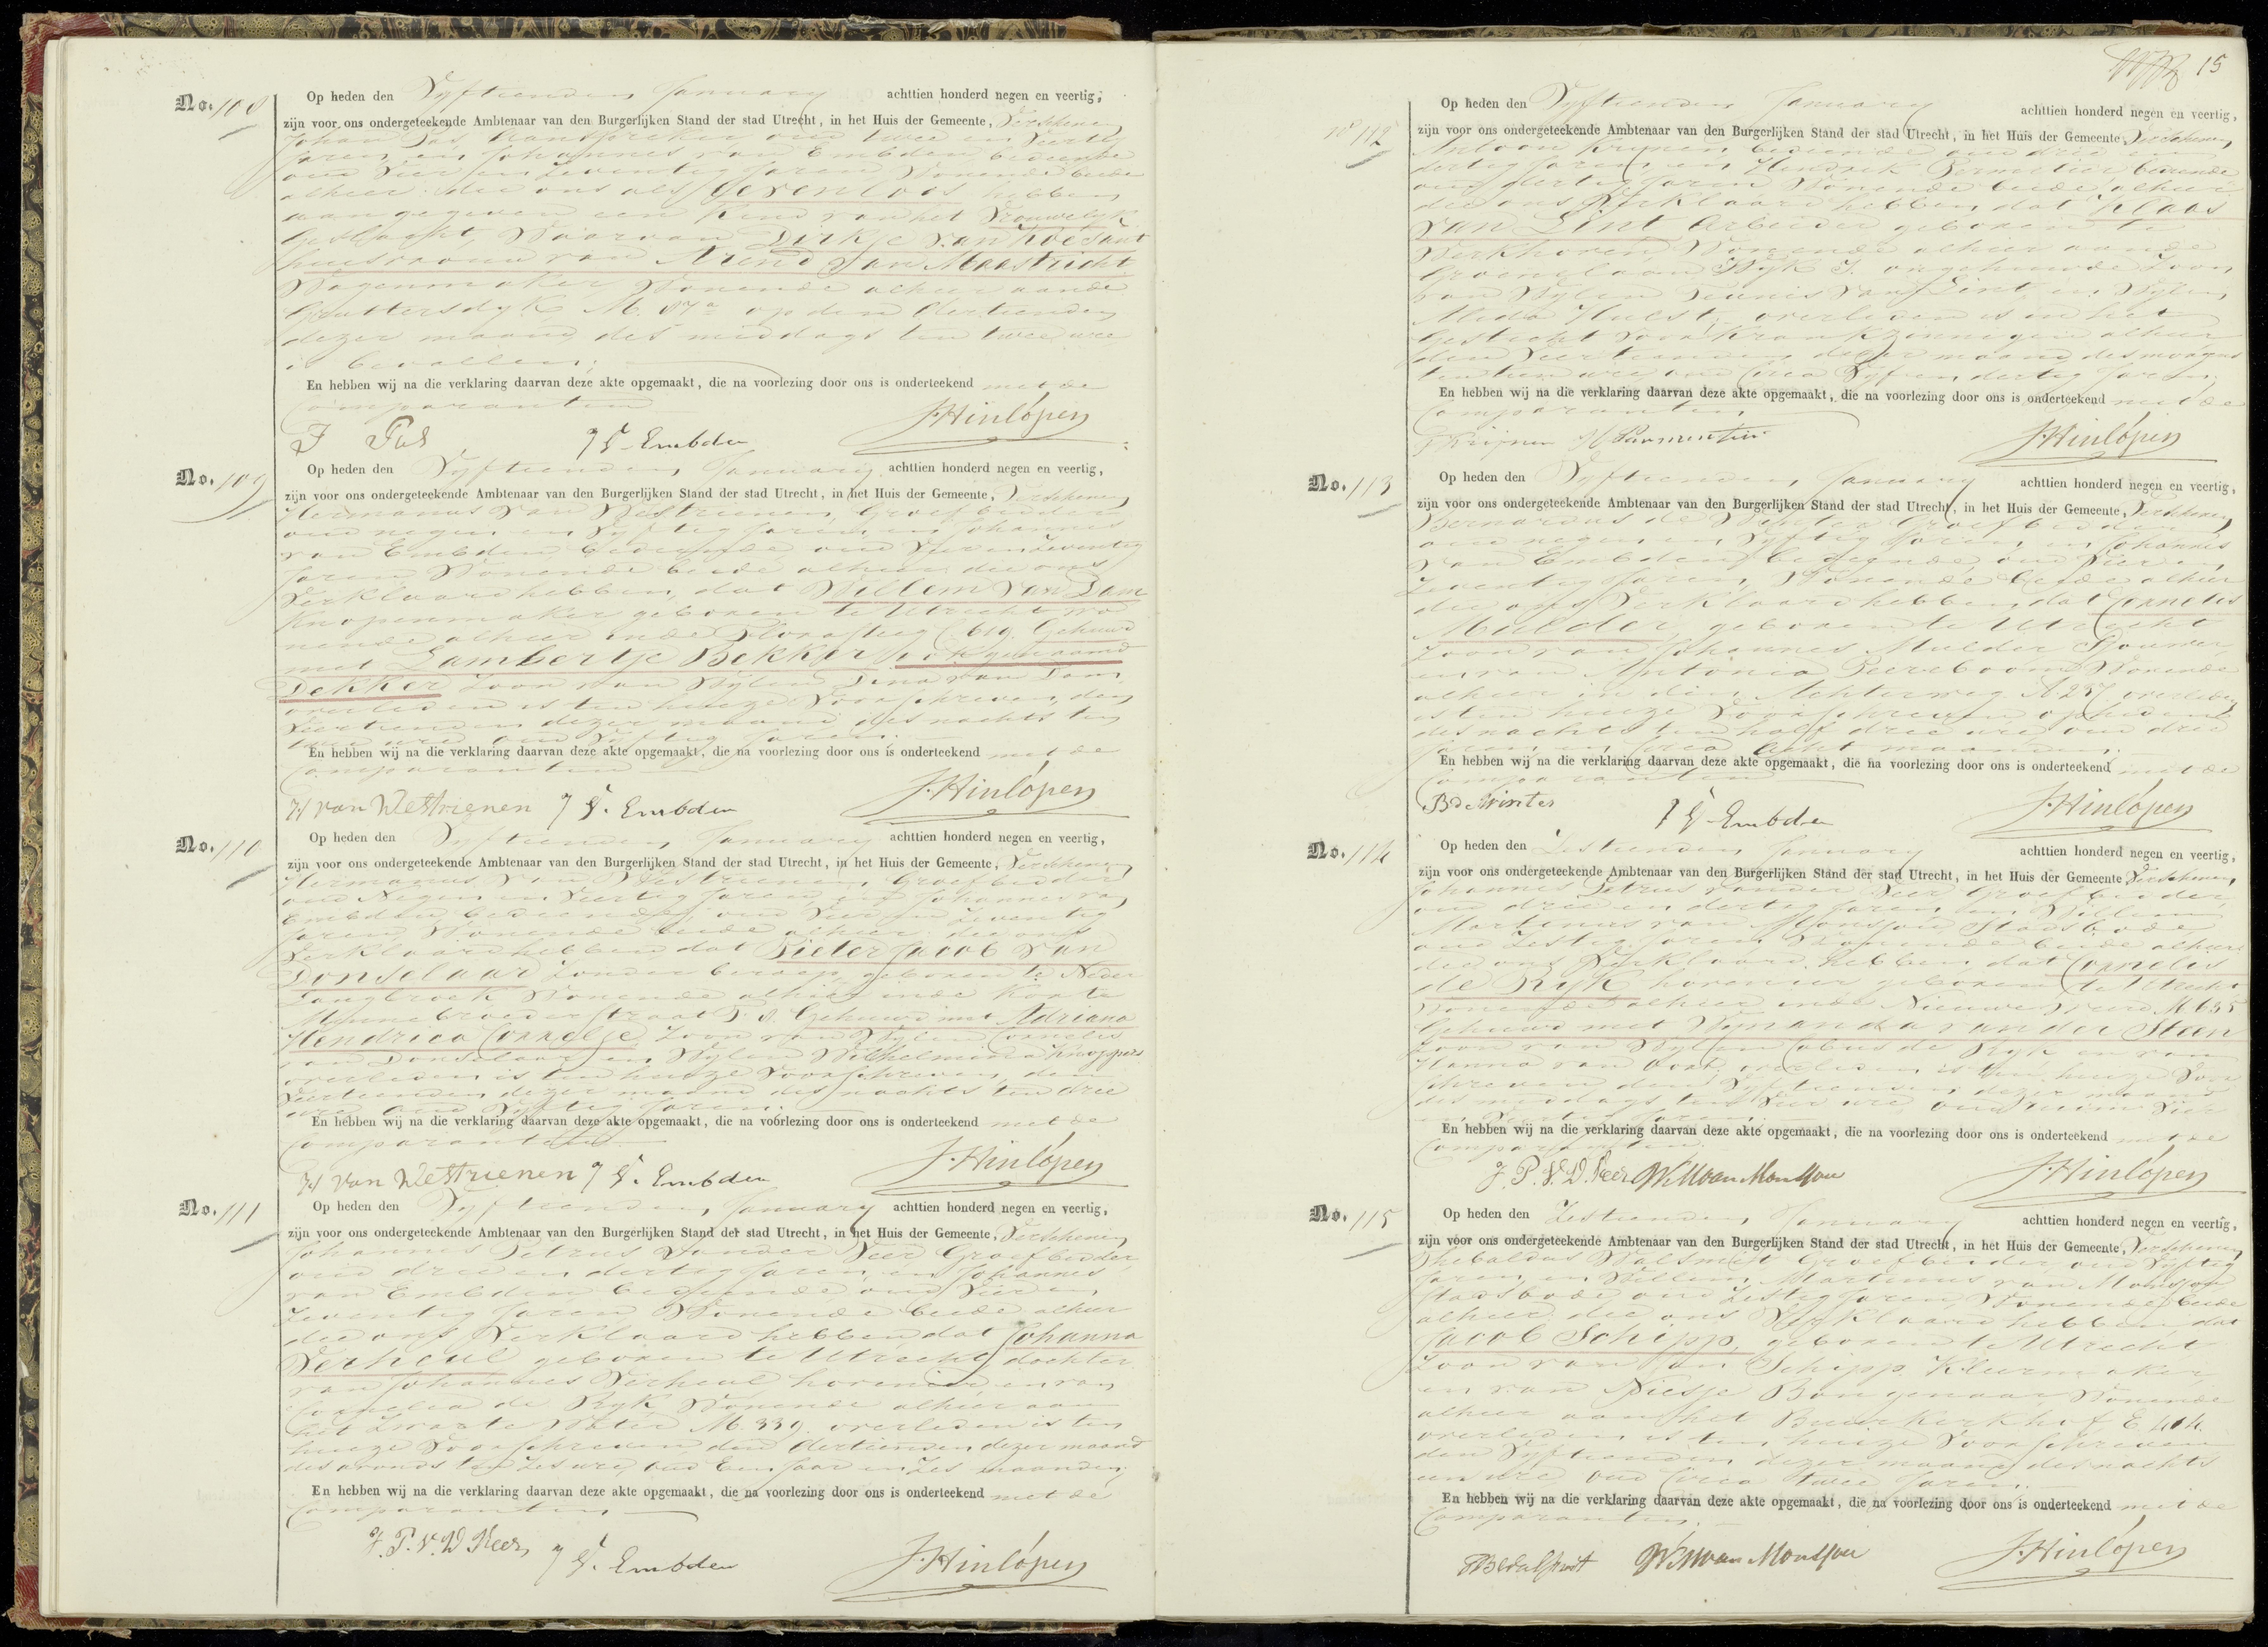 No. 108
Op heden den Vyftienden January achttien honderd negen en veertig,
zijn voor ons ondergeteekende Ambtenaar van den Burgerlijken Stand der stad Utrecht, in het Huis der Gemeente, Verschenen
Johan Pas oud twee en Veertig
Jaren en Johannes van Embden bediende
oud Vier en Zeventig Jaren Wonende beide
alhier die ons als Levenloos hebben
aangegeven een Kind van het Vrouwelyk
Geslacht, Waarvan Dirkje van Zoesant
huisvrouw van Arend van Maastricht
Wagenmaker Wonende alhier aande
Gruttersdyk M. 87a op den dertienden
dezer maand des middags ten twee ure
is bevallen.
En hebben wij na die verklaring daarvan deze akte opgemaakt, die na voorlezing door ons is onderteekend met de
Comparanten
J Pas J V. Embden J. Hinlópen
No. 109
Op heden den Vyftienden January achttien honderd negen en veertig,
zijn voor ons ondergeteekende Ambtenaar van den Burgerlijken Stand der stad Utrecht, in het Huis der Gemeente, Verschenen
Hermanus van Westrienen Groefbidder
oud negen en Vyftig Jaren en Johannes
van Embden bediende oud Vier en Zeventig
Jaren Wonende beide alhier die ons
Verklaard hebben, dat Willem van Dam
Knopenmaker geboren te Utrecht wo
nende alhier inde C 619. Gehuwd
met Lambertje Bekker ook genaamd
Dekker Zoon van Wylen Dina van Dam
overleden is ten huize Voorschreven den
Veertienden dezer maand des nachts ten
twee ure oud Vyftig Jaren.
En hebben wij na die verklaring daarvan deze akte opgemaakt, die na voorlezing door ons is onderteekend met de
Comparanten
H van Westrienen J V. Embden J. Hinlópen
No. 110
Op heden den Vyftienden January achttien honderd negen en veertig,
zijn voor ons ondergeteekende Ambtenaar van den Burgerlijken Stand der stad Utrecht, in het Huis der Gemeente, Verschenen
Hermanus van Westrienen Groefbidder
oud Negen en Veertig Jaren en Johannes van
Embden bediende oud Vier en Zeventig
Jaren Wonende beide alhier die ons
Verklaard hebben dat Pieter Jacob van
Donselaar Zonder beroep geboren te Neder
Langbroek Wonende alhier inde Korte
Minnebroederstraat D. 8. Gehuwd met Adriana
Hendrica Cornelje Zoon van Wylen Cornelis
van Donselaar en Wylen Wilhelmina Knoppers
overleden is ten huize Voorschreven den
Veertienden dezer maand des nachts ten drie
ure oud Vyftig Jaren.
En hebben wij na die verklaring daarvan deze akte opgemaakt, die na voorlezing door ons is onderteekend met de
Comparanten
H van Westrienen J V. Embden J. Hinlópen
No. 111
Op heden den Vyftienden January achttien honderd negen en veertig,
zijn voor ons ondergeteekende Ambtenaar van den Burgerlijken Stand der stad Utrecht, in het Huis der Gemeente, Verschenen
Johannes Petrus vander Veer Groefbidder
oud drie en dertig Jaren en Johannes
van Embden bediende oud Vier en
Zeventig Jaren Wonende beide alhier
die ons Verklaard hebben dat Johanna
Verheul geboren te Utrecht dochter
van Johannes Verheul hovenier en van
Cornelia de Ryk Wonende alhier aan
het Zwarte Water M. 339. overleden is ten
huize Voorschreven den dertienden dezer maand
des avonds ten Zes ure, oud Een Jaar en Zes maanden.
En hebben wij na die verklaring daarvan deze akte opgemaakt, die na voorlezing door ons is onderteekend met de
Comparanten
J. P. V. D Veer J V. Embden J. Hinlópen
15
No 112
Op heden den Vyftienden January achttien honderd negen en veertig,
zijn voor ons ondergeteekende Ambtenaar van den Burgerlijken Stand der stad Utrecht, in het Huis der Gemeente, Verschenen
Antoon Krijnen bediende oud drie en
dertig Jaren en Hendrik Permentier bediende
oud dertig Jaren Wonende beide alhier
die ons Verklaard hebben, dat Klaas
van Lint Arbeider geboren te
Werkhoven Wonende alhier aande
Groenelaan Wyk I. ongehuwde Zoon
van Wylen Teunis van Lint en Wylen
Alida Hulst, overleden is in het
Gesticht Voor Krankzinnigen alhier
den Veertienden dezer maand des morgens
ten tien ure oud Circa Vyf en dertig Jaren.
En hebben wij na die verklaring daarvan deze akte opgemaakt, die na voorlezing door ons is onderteekend met de
Comparanten
Krijnen H Parmentier J. Hinlópen
No. 113
Op heden den Vyftienden January achttien honderd negen en veertig,
zijn voor ons ondergeteekende Ambtenaar van den Burgerlijken Stand der stad Utrecht, in het Huis der Gemeente, Verschenen
Bernardus de Winter Groefbidder
oud negen en Vyftig Jaren en Johannes
van Embden bediende oud Vier en
Zeventig Jaren, Wonende beide alhier
die ons Verklaard hebben, dat Cornelis
Mulder, geboren te Utrecht
Zoon van Johannes Mulder Sjouwer
en van Antonia Peereboom Wonende
alhier in den Achterweg A 257 overleden
is ten huize Voorschreven op heden
des nachts ten half drie ure oud drie
Jaren en Circa Acht maanden.
En hebben wij na die verklaring daarvan deze akte opgemaakt, die na voorlezing door ons is onderteekend met de
Comparanten
B de Winter J V. Embden J. Hinlópen
No. 114
Op heden den Zestienden January achttien honderd negen en veertig,
zijn voor ons ondergeteekende Ambtenaar van den Burgerlijken Stand der stad Utrecht, in het Huis der Gemeente Verschenen,
Johannes Petrus vander Veer Groefbidder
oud drie en dertig Jaren en Willem
Martinus van Monsjou Stadsbode
oud Zestig Jaren Wonende beide alhier
die ons Verklaard hebben, dat Cornelis
de Ryk hovenier geboren te Utrecht
Wonende alhier inde Nieuwe M 635
Gehuwd met Wymanda van der Steen
Zoon van Wylen Cobus de Ryk en van
Hanna van overleden is ten huize Voor
schreven den Vyftienden dezer maand
des middags ten Vier ure oud ruim Vier
en Veertig Jaren.
En hebben wij na die verklaring daarvan deze akte opgemaakt, die na voorlezing door ons is onderteekend met de
Comparanten
J. P. V. D. Veer W M van Monsjou J. Hinlópen
No. 115
Op heden den Zestienden January achttien honderd negen en veertig,
zijn voor ons ondergeteekende Ambtenaar van den Burgerlijken Stand der stad Utrecht, in het Huis der Gemeente, Verschenen
Groefbidder oud Vyftig
Jaren en Willem Martinus van Monsjou
Stadsbode oud Zestig Jaren, Wonende beide
alhier die ons Verklaard hebben dat
Jacob Schipp, geboren te Utrecht
Zoon van Jan Schipp Kleermaker
en van Niesje Bongenaar Wonende
alhier aan het Buurkerkhof E 404.
overleden is ten huize Voorschreven
den Vyftienden dezer maand des nachts
een ure oud Circa twee Jaren.
En hebben wij na die verklaring daarvan deze akte opgemaakt, die na voorlezing door ons is onderteekend met de
Comparanten.
W M van Monsjou J. Hinlópen